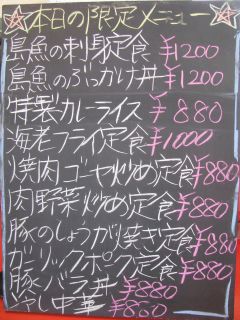 本日の限定メニュー
島魚の刺身定食 ¥1200
島魚のぶっかけ丼 ¥1200
特製カレーライス ¥880
海老フライ定食 ¥1000
焼肉ゴーヤ炒め定食 ¥880
肉野菜炒め定食 ¥880
豚のしょうが焼き定食 ¥880
ガーリックポーク定食 ¥880
豚バラ丼 ¥880
冷やし中華 ¥880